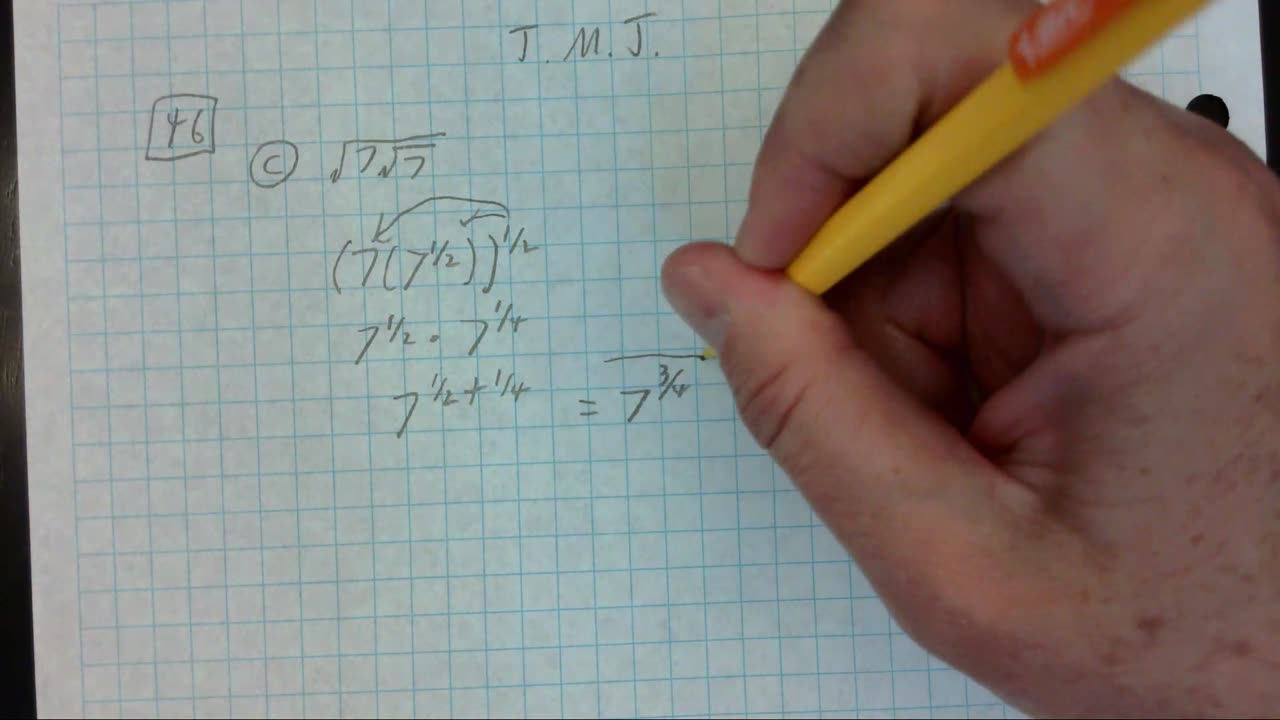 J. M. J.
46
C √7√7
(7(7^1/2))^1/2
7^1/2 · 7^1/4
7^1/2+1/4 = 7^3/4